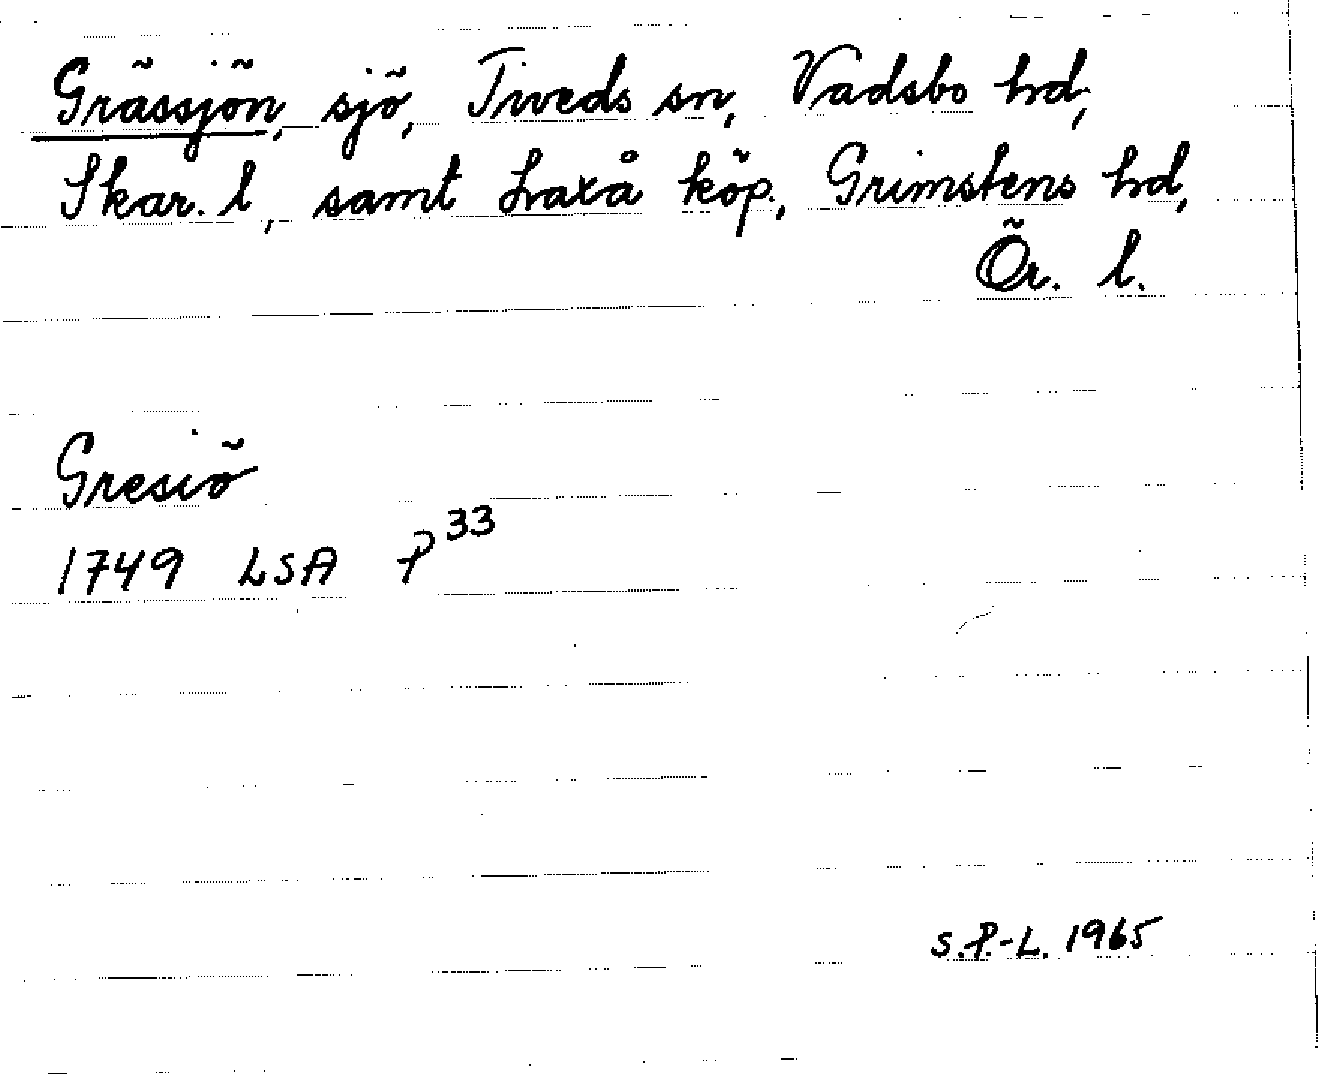 Grässjön, sjö, Tiveds sn, Vadsbo hd,
Skar. l, samt Laxå köp., Grimstens hd,
Ör. l.
Gresiö
1749 LSA P 33
S.P.-L. 1965